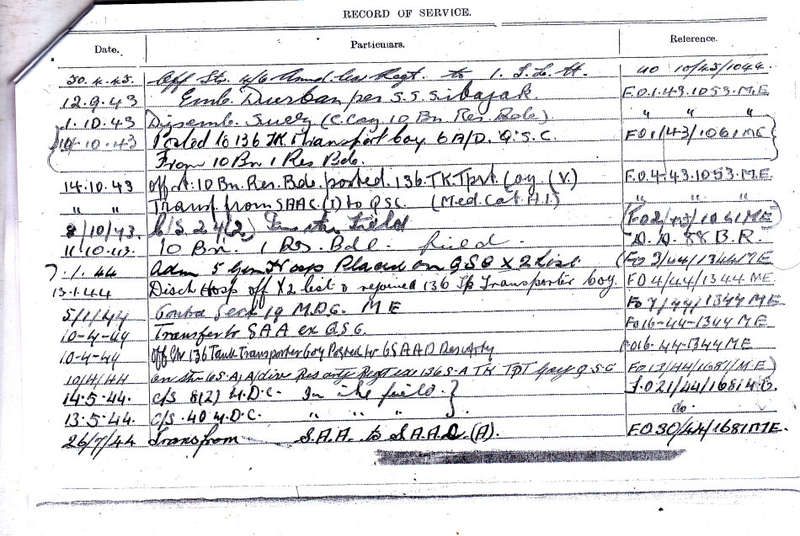 RECORD OF SERVICE.
Date. Particulars. Reference.
30.4.43 Off Str. Regt. to 1. I.L.H. 10/43/1044
12.9.43 Emb. Durban per S.S. Sibajak F.O.1.43.1053.M.E
1.10.43 Disemb. Suez (C. Coy 10 Bn. Res. Bde) " " "
10.10.43 Posted to 136 TK Transport Coy. 6 A/D. Q.S.C. F.O1/43/1061ME
From 10 Bn 1 Res Bde.
14.10.43 off str. 10 Bn. Res. Bde. posted 136.TK.Tprt. Coy. (V.) F.O.4-43.1053.M.E
" " Transf. from SAAC.(I) to QSC. (Med. Cat A.I.) " " "
8/10/43. C/S. 24(2) Field
11.10.43. 10 Bn. 1 Res. Bde. field. D.A. 88 B.R.
7.1.44 Adm 5 Gen Hosp Placed on QSC X2 List (FO 2/44/1344ME
13.1.44 Disch Hosp off X2 list & rejoined 136 Transporter Coy. FO4/44/1344 ME
5/1/44 Contra Sect 19 M.D.C. M E FO 7/44/1344 ME
10-4-44 Transfer to SAA ex QSC. FO16-44-1344 M.E
10-4-44 off Str 136 Tank Transporter Coy Posted to 6SAAD Res Arty FO16.44-1344ME
10/4/44 on str 6 S.A.A/div Res arty Regt ex 136 S.A TK TPT Coy Q.S.C FO13/44/1681/M.E)
14.5.44. C/S 8(2) M.D.C. In the field. F.O21/44/1681 M.E.
13.5.44. C/S. 40 M.D.C. " " " do.
26/7/44 Trans from S.A.A. to S.A.A.C (A). F.O.30/44/1681ME.